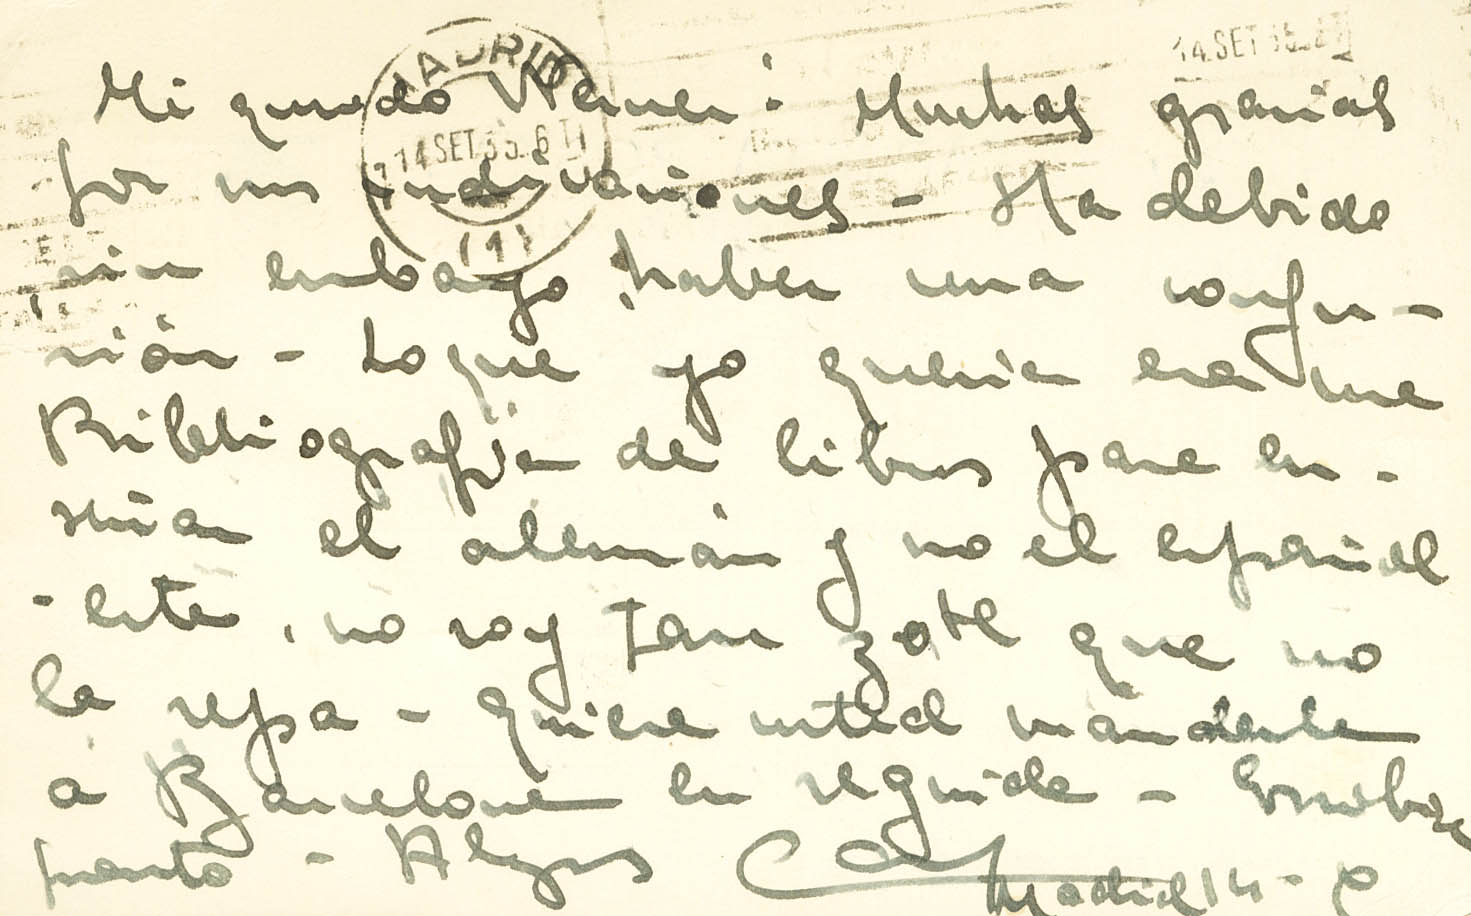 MADRID
14 SET 35. 6 T
(1)
14.SET 35.
Mi querido Werner: Muchas gracias
por sus indicaciones - Ha debido
sin embargo, haber una confu-
sión - Lo que yo quería era una
Bibliografía de libros para en-
señar el alemán y no el español
- este, no soy tan zote que no
la sepa - Quiere usted mandarla
a Barcelona en seguida - Escribiré
pronto -
Madrid 14 -